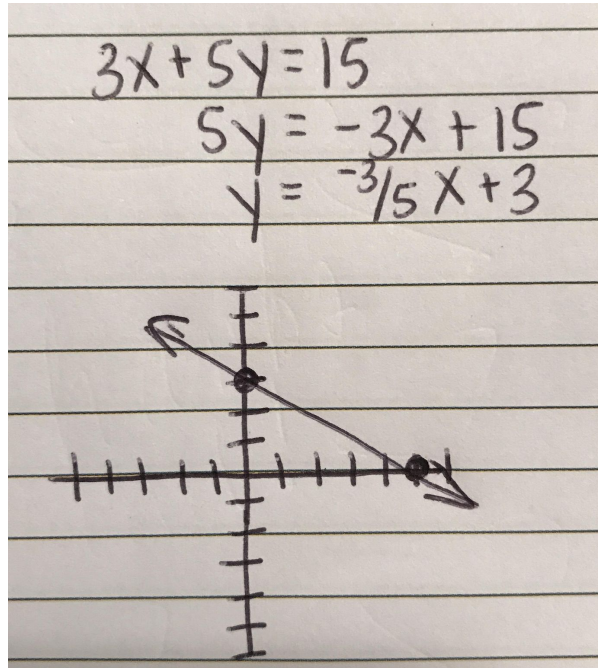 3x+5y=15
5y = -3x + 15
y = -3/5 x+3